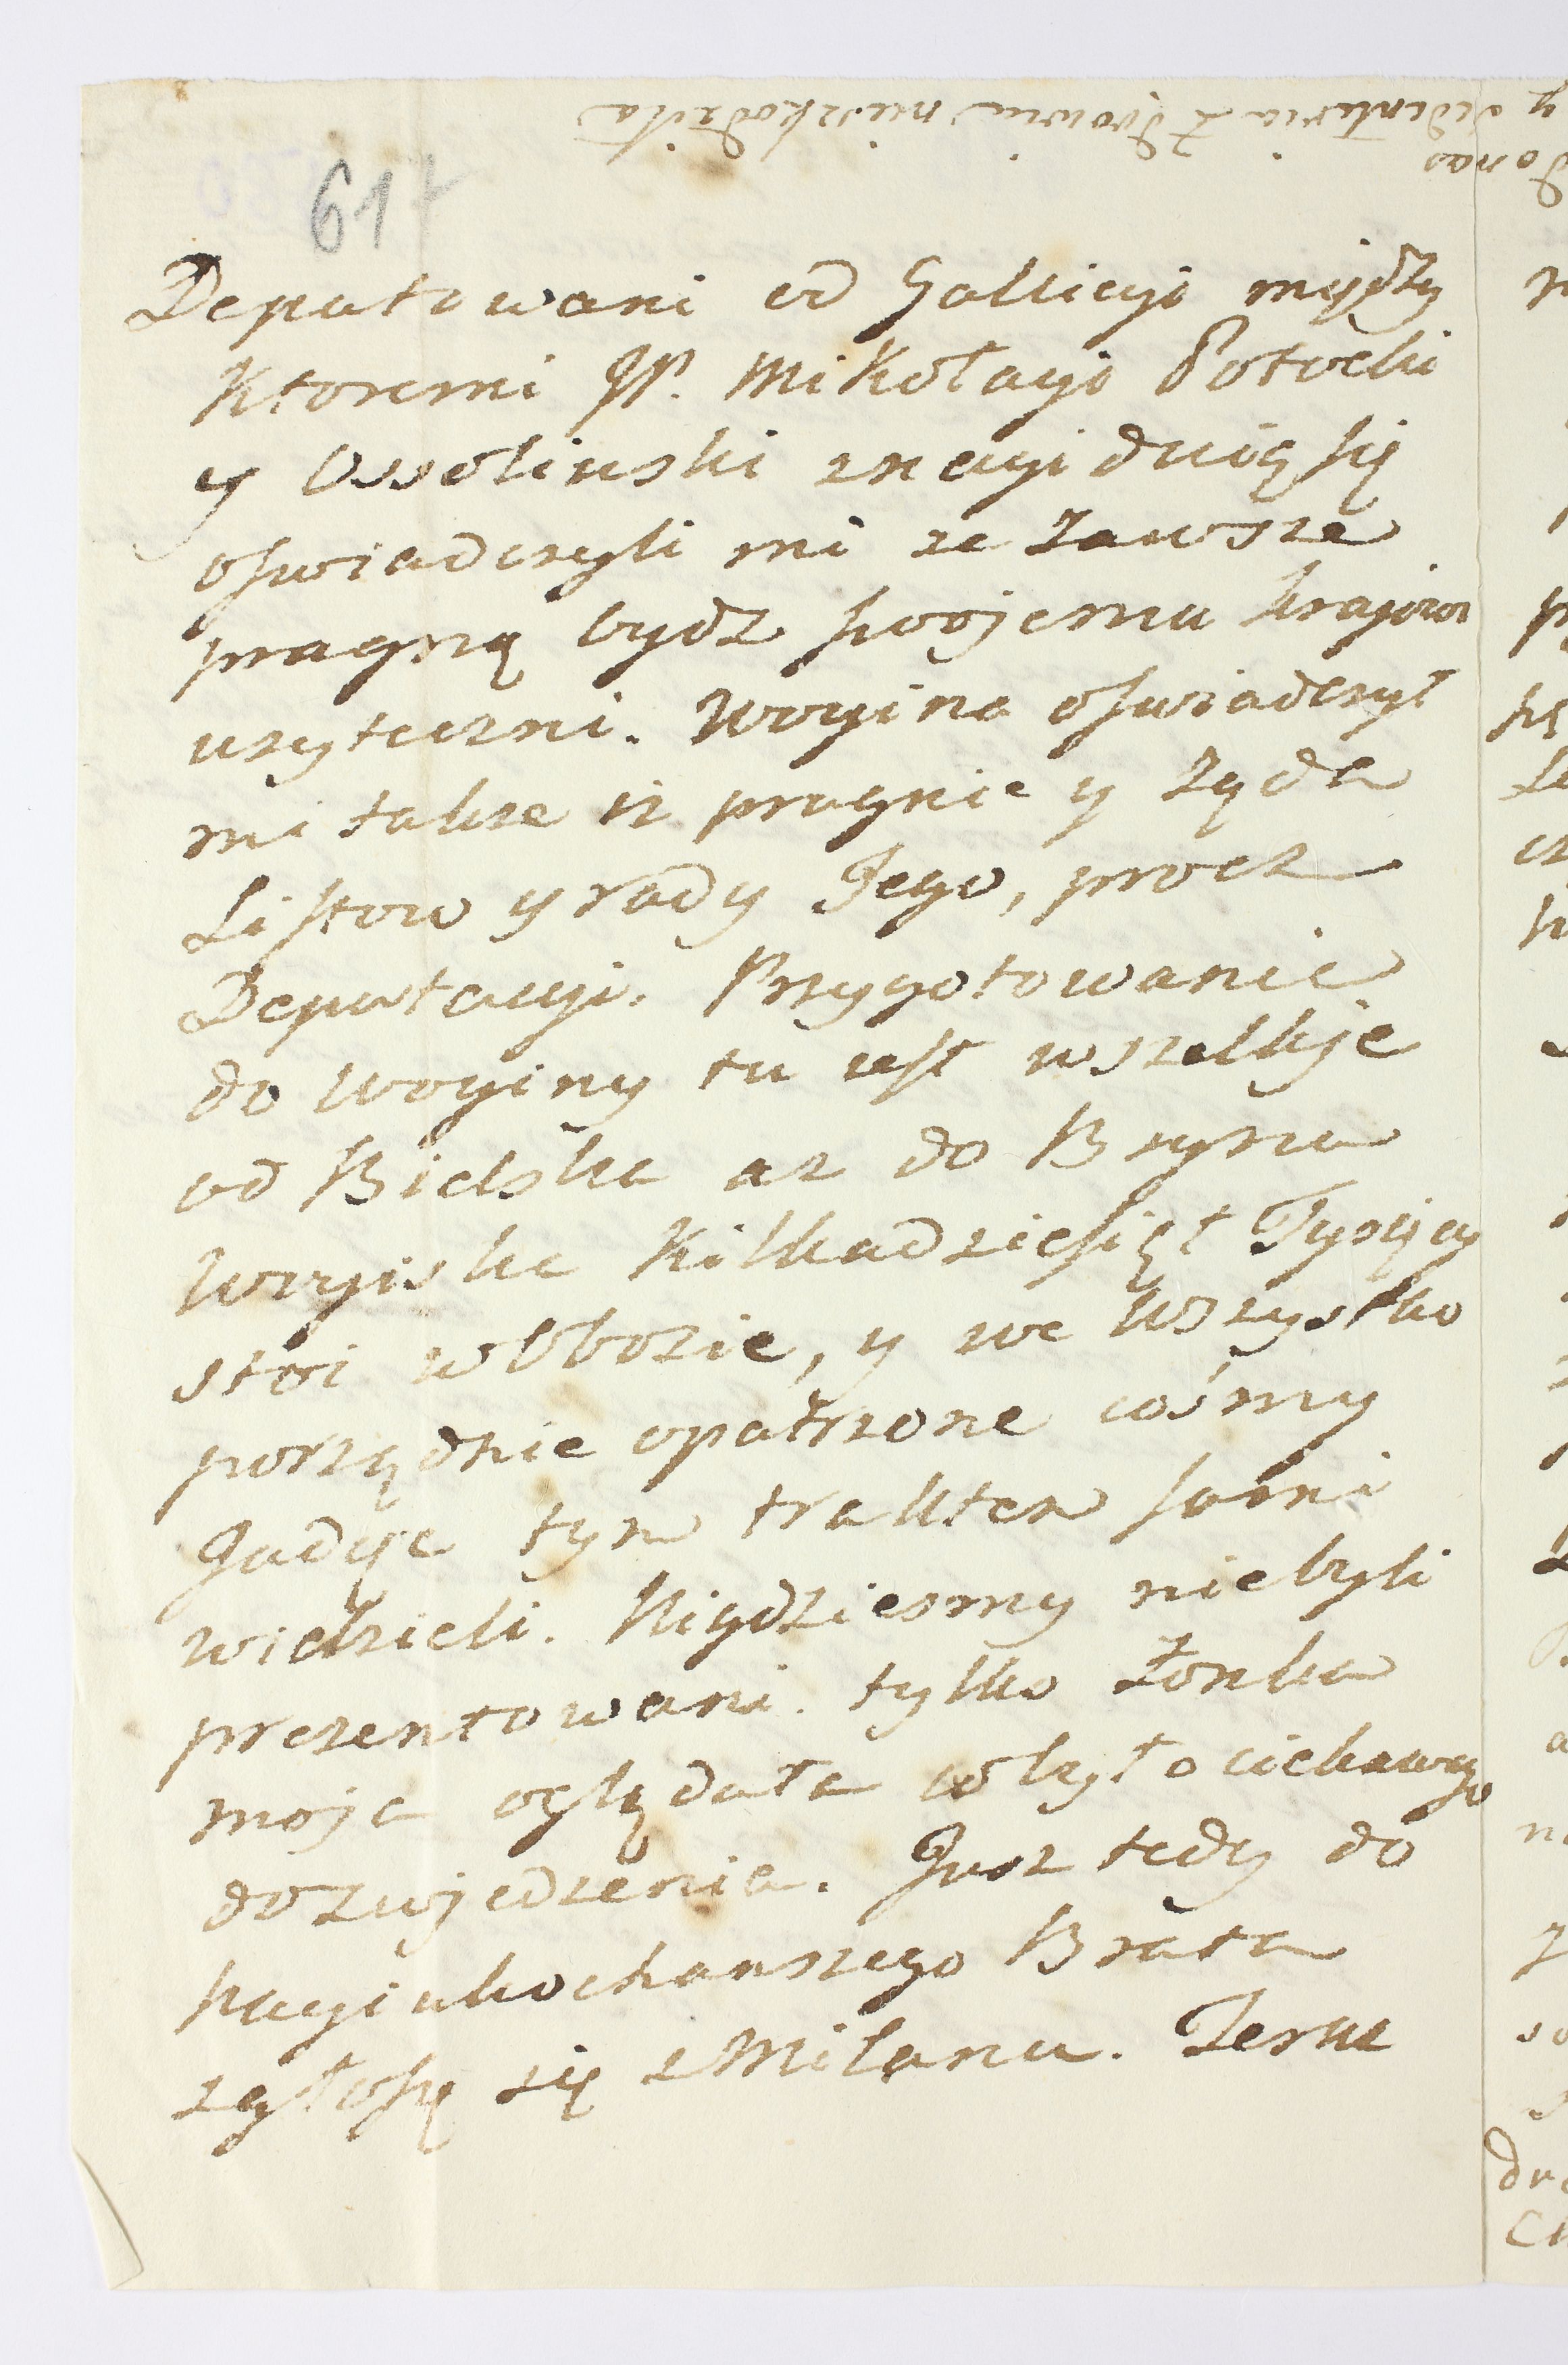 617
Deputowani od Gallicyi między
Ktoremi JP. Mikołayi Potocki
y Ossolinski znayiduią się
oswiadczyli mi ze zawsze
pragną bydz swojemu krajowi
uzyteczni. Woyina oswiadczył
mi takze iz pragnie y ząda
Listow y rady Jego, procz
Deputacyi. Przygotowanie
do woyiny tu iest wszelkje
od Bielska az do Bryna
woyiska Kilkadziesiąt Tysięcy
stoi w Obozie, y we wszystko
porządnie opatrzone cośmy
Jadąc tym traktem sami
widzieli. Nigdziesmy niebyli
prezentowani. tylko Żonka
moja oglądała co było ciekawego
do zwjedzenia. Jusz tedy do
Nayiukochanszego Brata
zgłoszę się z Milanu. Teraz
y sedentaria Zdrowiu nieszkodziła